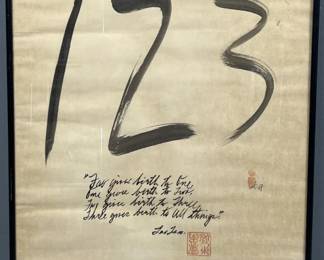 123
"Tao gives birth to One,
One gives birth to Two,
Two gives birth to Three,
Three gives birth to All things."
Lao Tzu.